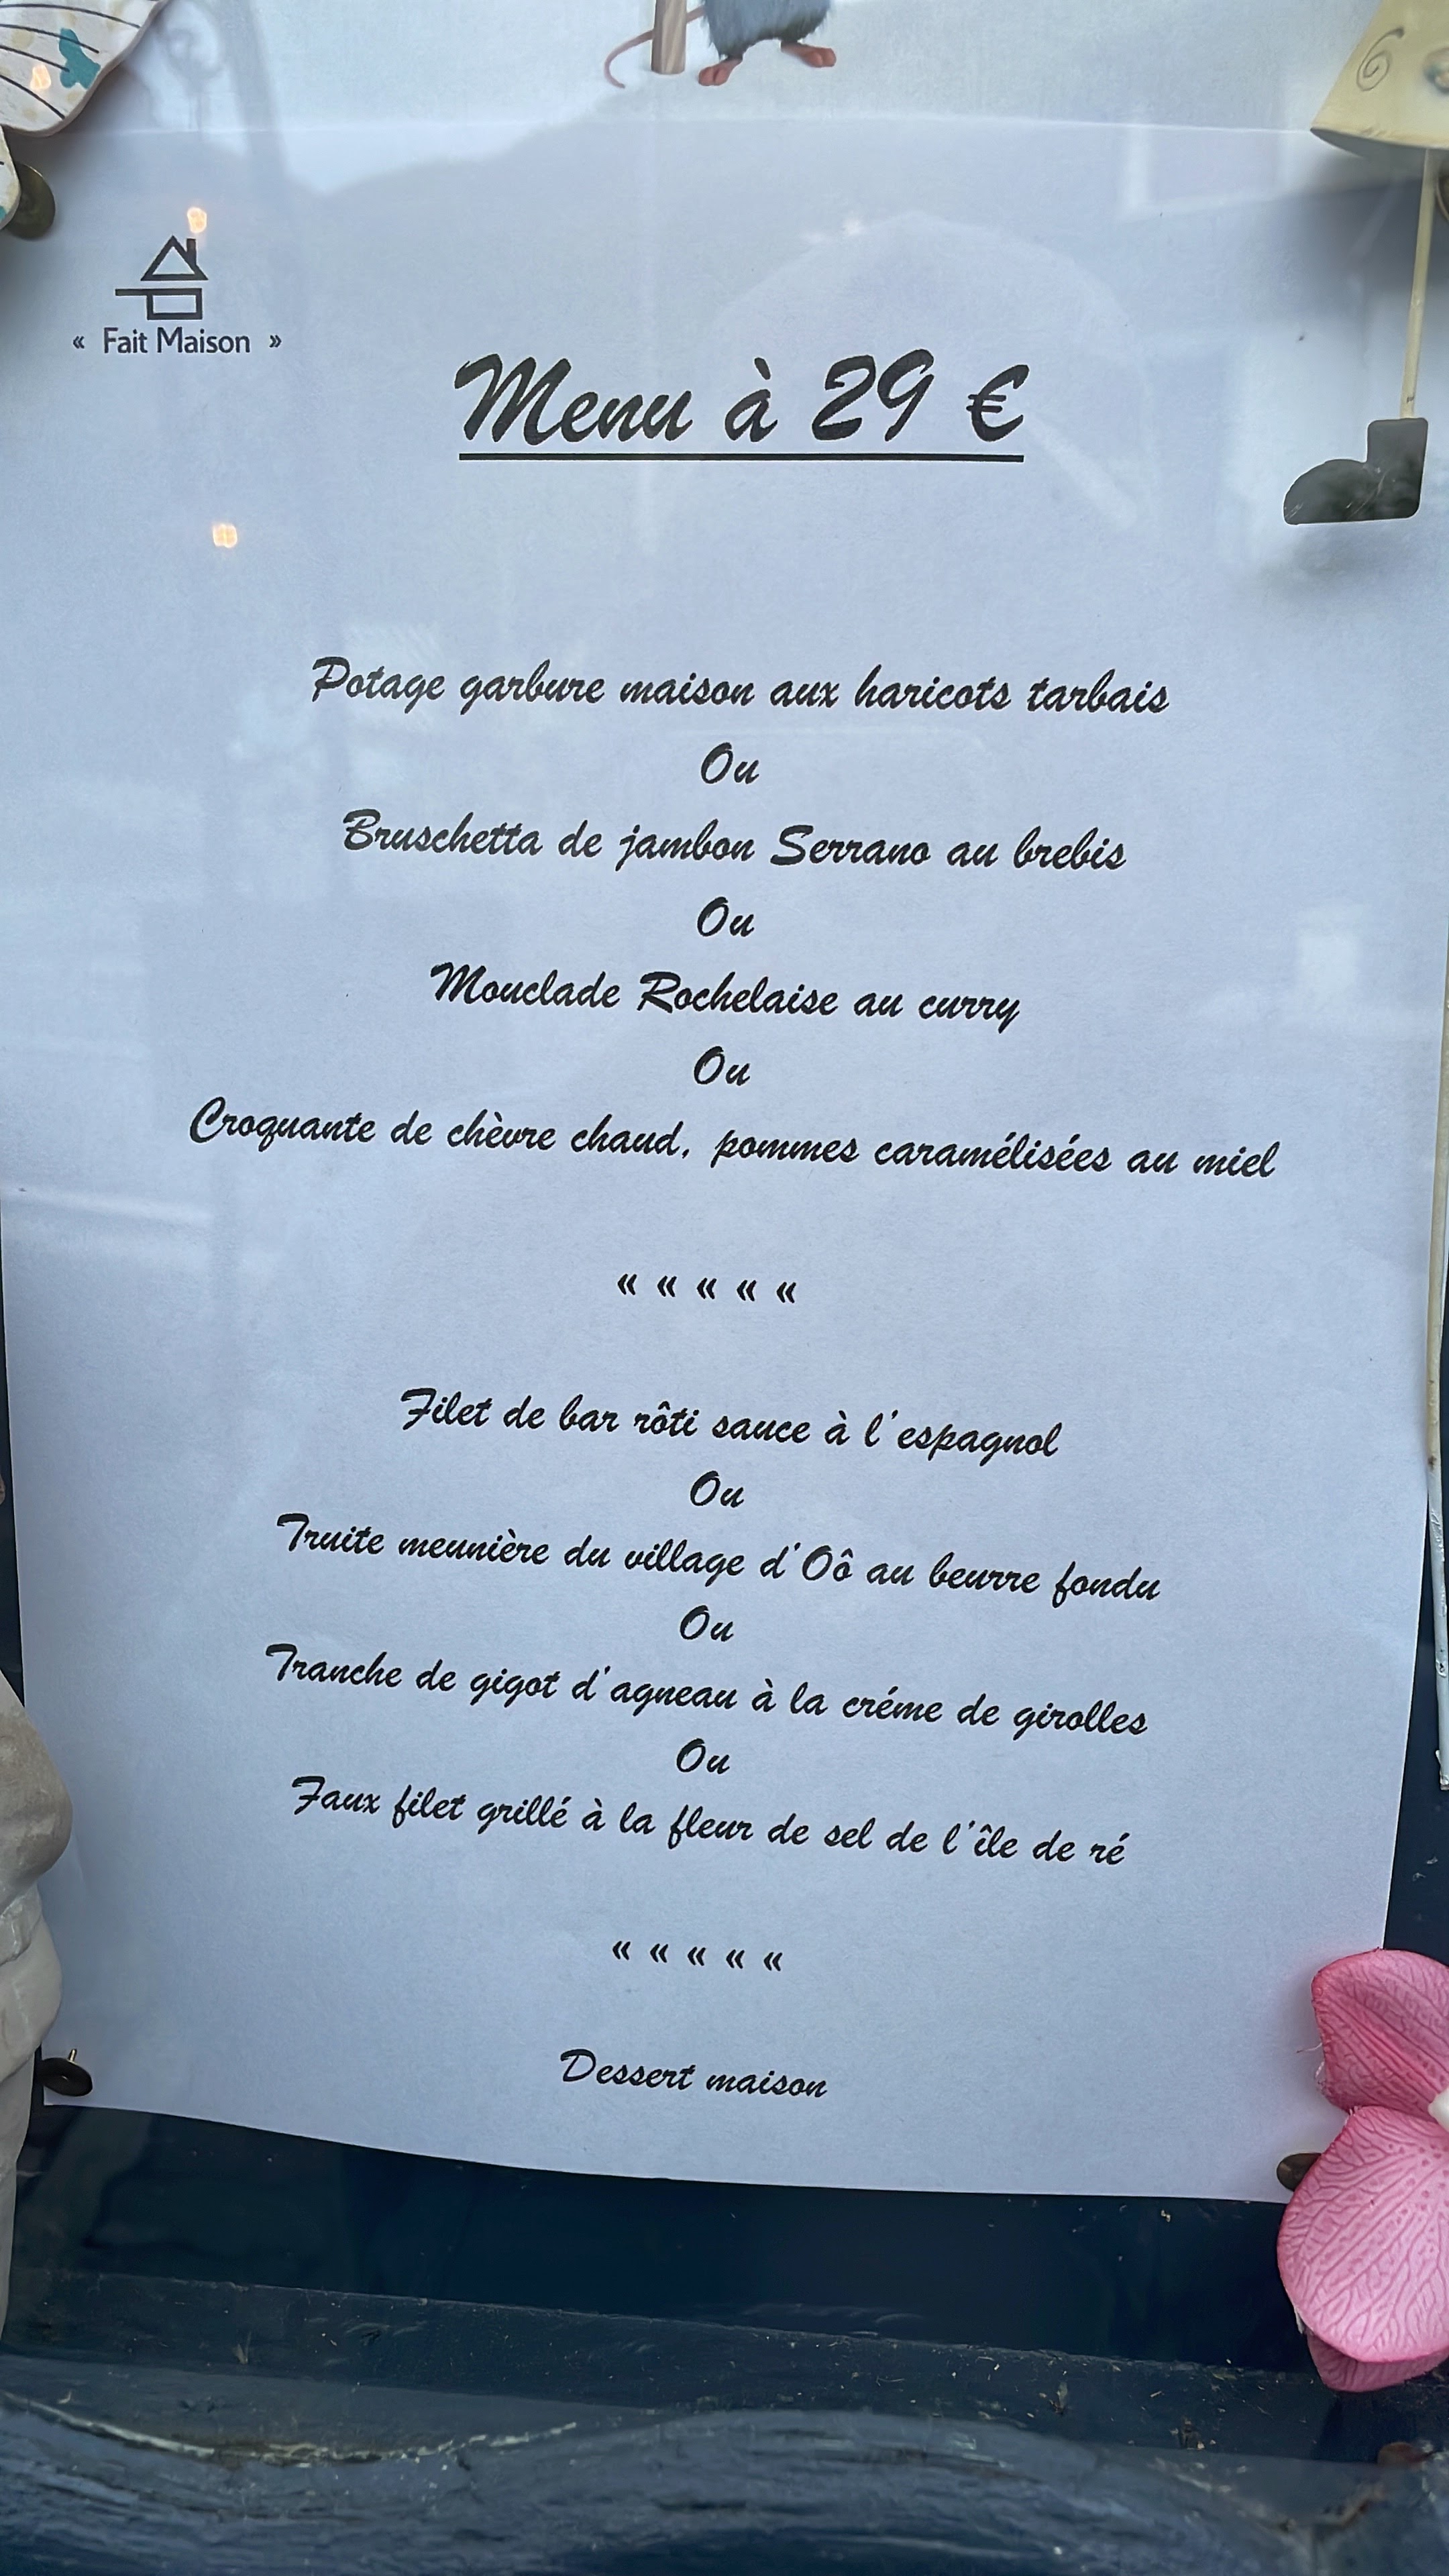 « Fait Maison »
Menu à 29 €
Potage garbure maison aux haricots tarbais
Ou
Bruschetta de jambon Serrano au brebis
Ou
Mouclade Rochelaise au curry
Ou
Croquante de chèvre chaud, pommes caramélisées au miel
« « « « «
Filet de bar rôti sauce à l'espagnol
Ou
Truite meunière du village d'Oô au beurre fondu
Ou
Tranche de gigot d'agneau à la créme de girolles
Ou
Faux filet grillé à la fleur de sel de l'île de ré
« « « « «
Dessert maison